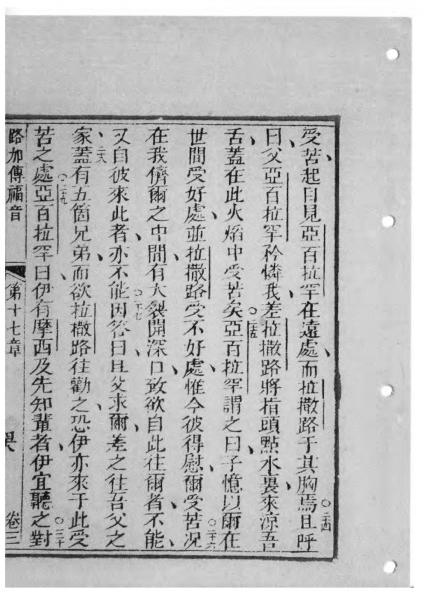 受苦起目見亞百拉罕在遠處而拉撒路于其胸焉且呼
曰父亞百拉罕矜憐我差拉撒路將指頭點水裏來涼吾
舌蓋在此火焰中受苦矣亞百拉罕謂之曰子憶以爾在
世間受好處並拉撒路受不好處惟今彼得慰爾受苦况
在我儕爾之中間有大裂開深口致欲自此往爾者不能
又自彼來此者亦不能因答曰且父求爾差之往吾父之
家蓋有五箇兄弟而欲拉撒路往勸之恐伊亦來于此受
苦之處亞百拉罕曰伊有摩西及先知輩者伊宜聽之對
路加傳福音 第十七章 卷三